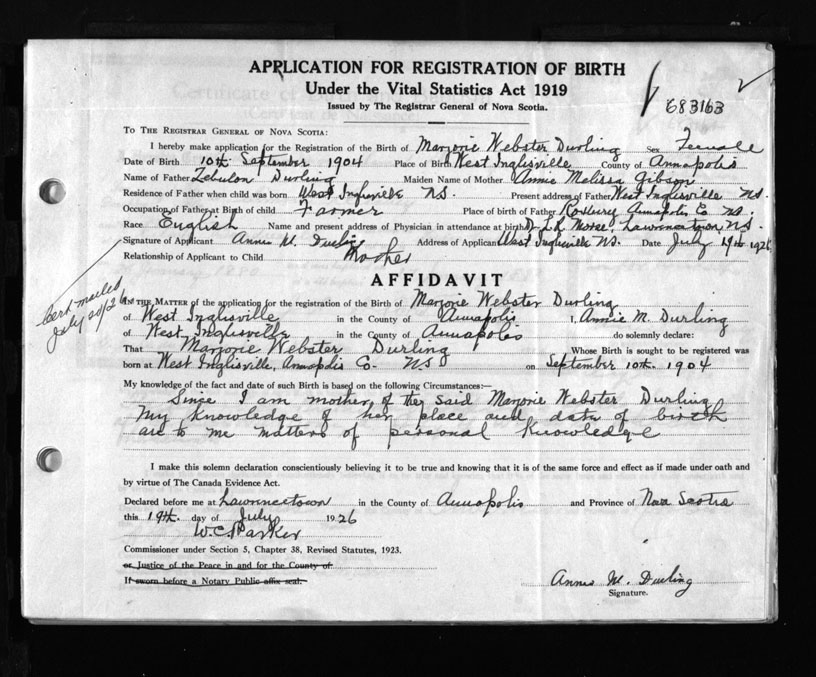 APPLICATION FOR REGISTRATION OF BIRTH
Under the Vital Statistics Act 1919
Issued by The Registrar General of Nova Scotia.
683163
TO THE REGISTRAR GENERAL OF NOVA SCOTIA:
I hereby make application for the Registration of the Birth of Marjorie Webster Durling Sex Female
Date of Birth 10th September 1904 Place of Birth West Inglisville County of Annapolis
Name of Father Zebulon Durling Maiden Name of Mother Annie Melissa Gibson
Residence of Father when child was born West Inglisville NS. Present address of Father West Inglisville NS.
Occupation of Father at Birth of child Farmer Place of birth of Father Roxbury Annapolis Co NS.
Race English Name and present address of Physician in attendance at birth Dr L R Morse, Lawrencetown NS.
Signature of Applicant Annie M. Durling Address of Applicant West Inglisville NS. Date July 19th 1926
Relationship of Applicant to Child Mother
AFFIDAVIT
Cert mailed
July 20/26
IN THE MATTER of the application for the registration of the Birth of Marjorie Webster Durling
of West Inglisville in the County of Annapolis I, Annie M. Durling
of West Inglisville in the County of Annapolis do solemnly declare:
That Marjorie Webster Durling Whose Birth is sought to be registered was
born at West Inglisville, Annapolis Co. NS on September 10th. 1904
My knowledge of the fact and date of such Birth is based on the following Circumstances:—
Since I am mother of the said Marjorie Webster Durling
My knowledge of her place and date of birth
are to me matters of personal knowledge
I make this solemn declaration conscientiously believing it to be true and knowing that it is of the same force and effect as if made under oath and
by virtue of The Canada Evidence Act.
Declared before me at Lawrencetown in the County of Annapolis and Province of Nova Scotia
this 19th. day of July 1926
W.C. Parker
Commissioner under Section 5, Chapter 38, Revised Statutes, 1923.
or Justice of the Peace in and for the County of
If sworn before a Notary Public affix seal.
Annie M. Durling
Signature.